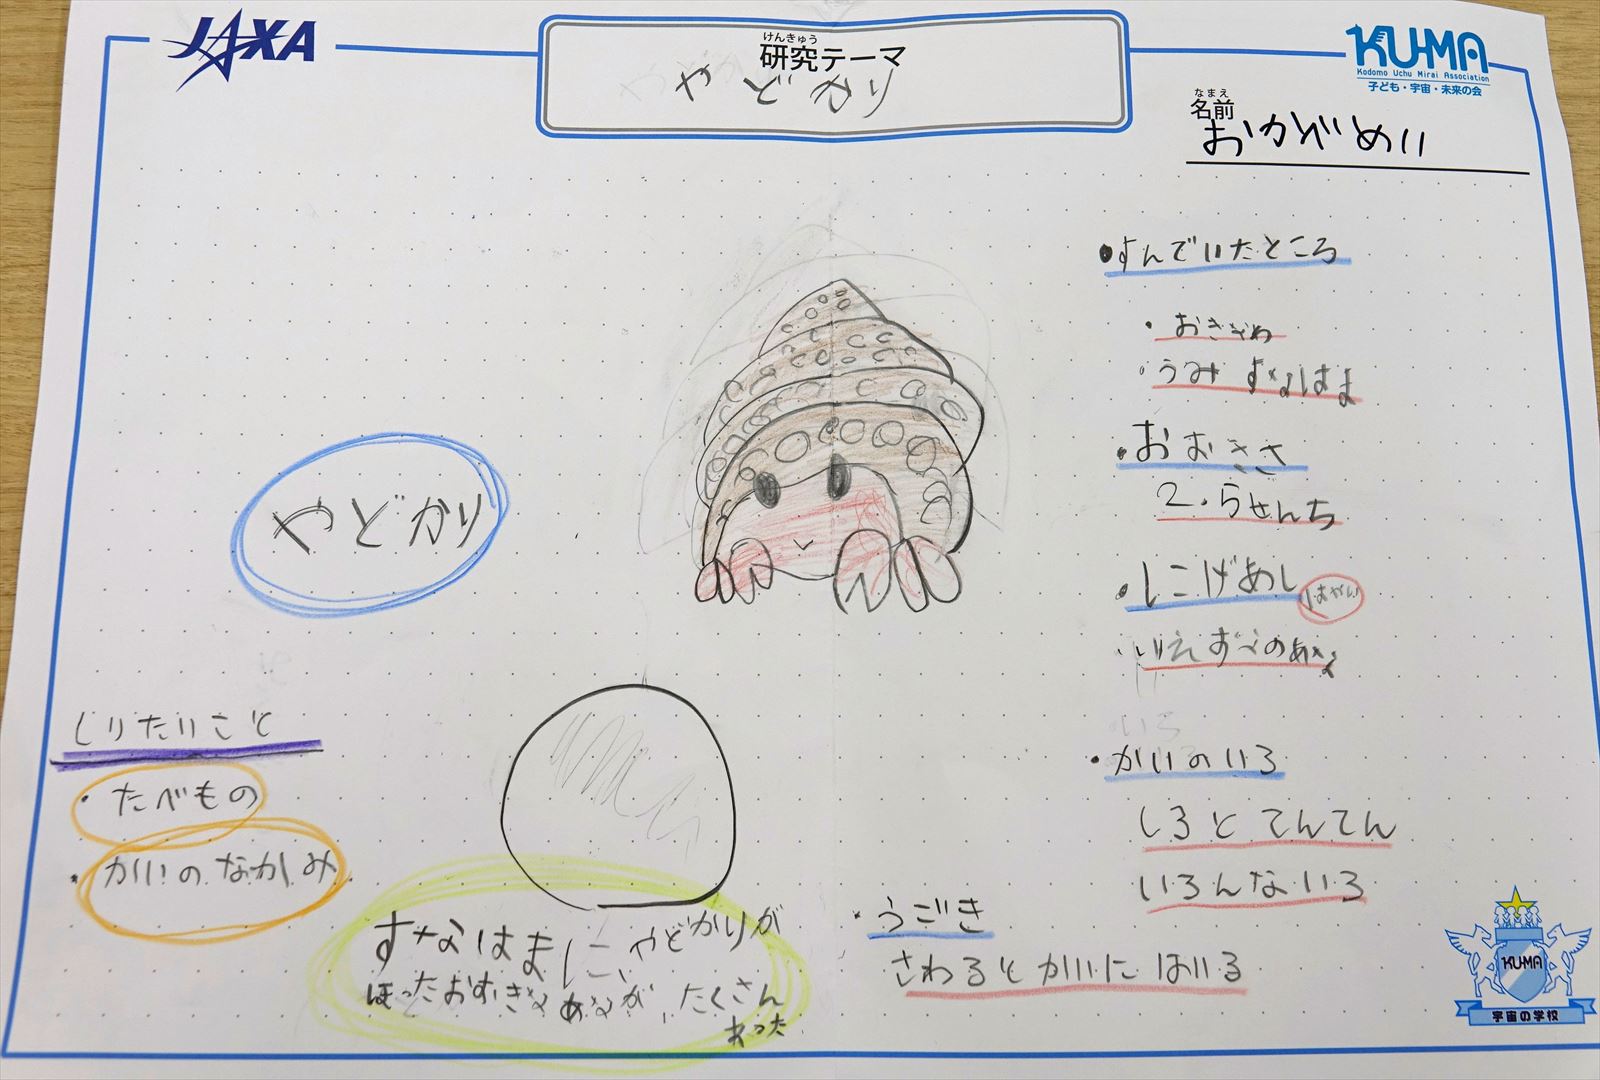 JAXA
けんきゅう
研究テーマ
やどかり
KU-MA
Kodomo Uchu Mirai Association
子ども・宇宙・未来の会
なまえ
名前
おかべめい
・すんでいたところ
・おきなわ
・うみ すなはま
・おおきさ
2.5せんち
・にげあし
はやい
すなのあな
・かいのいろ
しろ と てんてん
いろんな いろ
・うごき
さわると かいに はいる
やどかり
しりたいこと
・たべもの
・かいの なかみ
すなはまに やどかりが
ほったおおきな あなが たくさん
あった
KU-MA
宇宙の学校